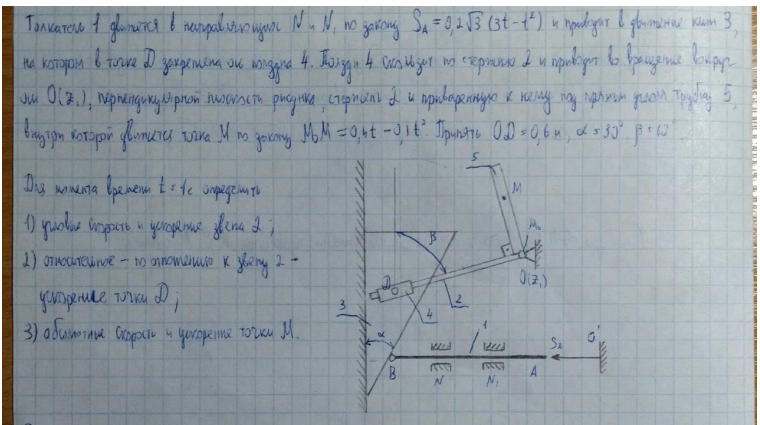 Толкатель 1 движется в направляющих N и N₁ по закону S_A = 0,2√3 (3t − t²) и приводит в движение клин 3,
на котором в точке D закреплена ось ползуна 4. Ползун 4 скользит по стержню 2 и приводит во вращение вокруг
оси O(z₁), перпендикулярной плоскости рисунка, стержень 2 и приваренную к нему под прямым углом трубку 5,
внутри которой движется точка M по закону M₀M = 0,4t − 0,1t². Принять OD = 0,6 м, α = 30° β = 60°
Для момента времени t = 1с определить
1) угловые скорость и ускорение звена 2;
2) относительное – по отношению к звену 2 –
ускорение точки D;
3) абсолютные скорость и ускорение точки M.
5
M
β
M₀
D
O(z₁)
3
2
4
α
1
S_A
O'
B
N
N₁
A